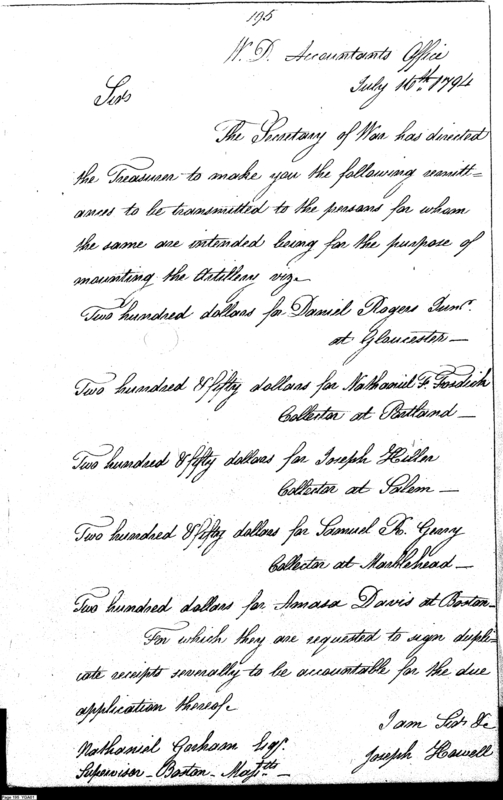 195
W. D. Accountants Office
July 16th. 1794
Sir
The Secretary of War has directed
the Treasurer to make you the following remitt=
ances to be transmitted to the persons for whom
the same are intended being for the purpose of
mounting the Artillery viz
Two hundred dollars for Daniel Rogers Junr.
at Gloucester —
Two hundred & fifty dollars for Nathaniel F. Fosdick
Collector at Portland —
Two hundred & fifty dollars for Joseph Hiller
Collector at Salem —
Two hundred & fifty dollars for Samuel R. Gerry
Collector at Marblehead —
Two hundred dollars for Amasa Davis at Boston —
For which they are requested to sign dupli=
cate receipts severally to be accountable for the due
application thereof.
I am Sir &c
Nathanial Gorham Esqr.
Joseph Howell
Supervisor — Boston — Massts —